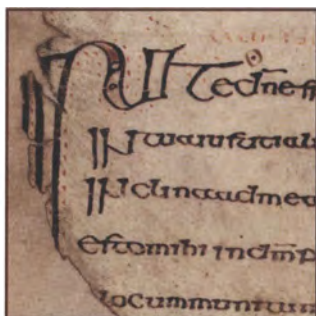 IN Te dn̄e sp
IN tuaiustitiali
IN clinaadmea
estomihi indm̄p
locummunitum